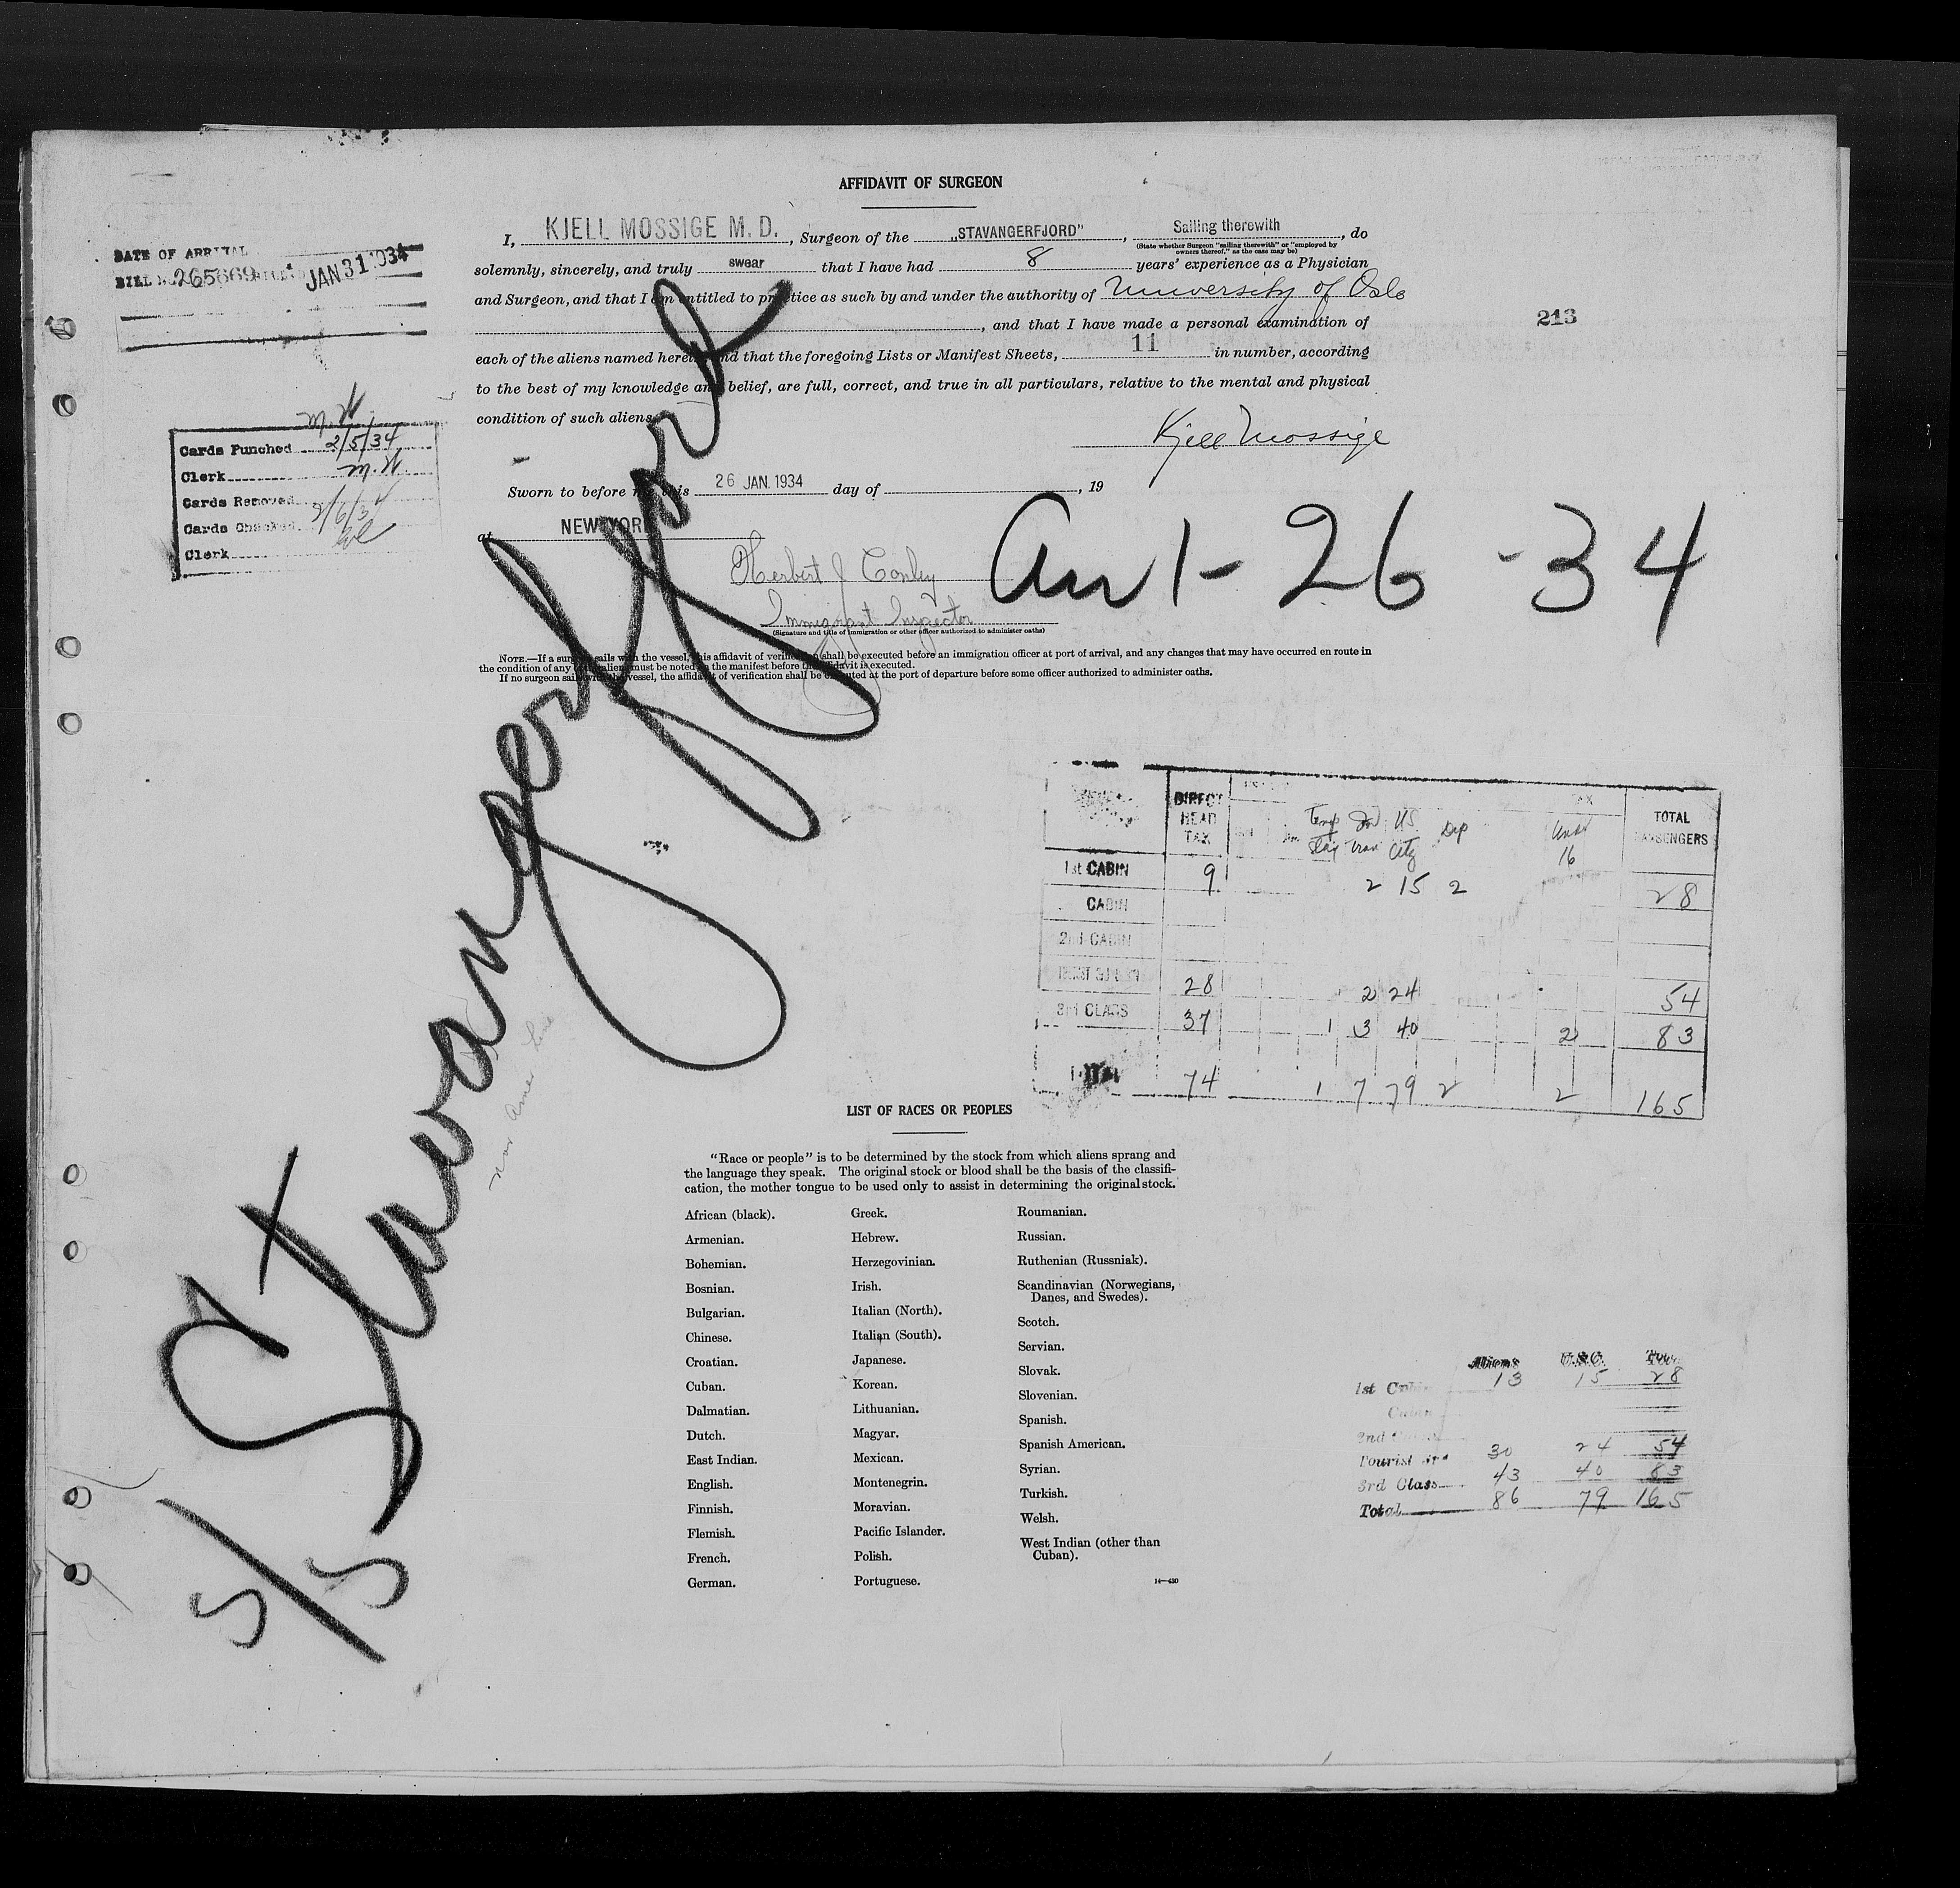 AFFIDAVIT OF SURGEON
I, KJELL MOSSIGE M. D., Surgeon of the „STAVANGERFJORD", Sailing therewith, do
(State whether Surgeon "sailing therewith" or "employed by owners thereof," as the case may be)
solemnly, sincerely, and truly swear that I have had 8 years' experience as a Physician
and Surgeon, and that I am entitled to practice as such by and under the authority of University of Oslo
, and that I have made a personal examination of
213
each of the aliens named herein and that the foregoing Lists or Manifest Sheets, 11 in number, according
to the best of my knowledge and belief, are full, correct, and true in all particulars, relative to the mental and physical
condition of such aliens
Kjell Mossige
Sworn to before me this 26 JAN. 1934 day of , 19
at NEW YORK
Herbert J Conley
Immigrant Inspector
(Signature and title of immigration or other officer authorized to administer oaths)
Arr 1-26-34
DATE OF ARRIVAL
BILL No. 265669 JAN 31 1934
M. W.
Cards Punched 2/5/34
Clerk M. W.
Cards Removed 2/6/34
Cards Checked
Clerk
NOTE.—If a surgeon sails with the vessel, this affidavit of verification shall be executed before an immigration officer at port of arrival, and any changes that may have occurred en route in
the condition of any alien must be noted on the manifest before the affidavit is executed.
If no surgeon sails with the vessel, the affidavit of verification shall be executed at the port of departure before some officer authorized to administer oaths.
S/S Stavangerfjord
Nor Amer Line
DIRECT HEAD TAX Temp Stay Tran US Citz Dip Under 16 TOTAL PASSENGERS
1st CABIN 9 2 15 2 28
CABIN
2nd CABIN
28 2 24 54
3rd CLASS 37 1 3 40 2 83
TOTAL 74 1 7 79 2 2 165
LIST OF RACES OR PEOPLES
"Race or people" is to be determined by the stock from which aliens sprang and
the language they speak. The original stock or blood shall be the basis of the classifi-
cation, the mother tongue to be used only to assist in determining the original stock.
African (black).
Armenian.
Bohemian.
Bosnian.
Bulgarian.
Chinese.
Croatian.
Cuban.
Dalmatian.
Dutch.
East Indian.
English.
Finnish.
Flemish.
French.
German.
Greek.
Hebrew.
Herzegovinian.
Irish.
Italian (North).
Italian (South).
Japanese.
Korean.
Lithuanian.
Magyar.
Mexican.
Montenegrin.
Moravian.
Pacific Islander.
Polish.
Portuguese.
Roumanian.
Russian.
Ruthenian (Russniak).
Scandinavian (Norwegians,
Danes, and Swedes).
Scotch.
Servian.
Slovak.
Slovenian.
Spanish.
Spanish American.
Syrian.
Turkish.
Welsh.
West Indian (other than
Cuban).
14—430
Aliens U.S.C. Total
1st Cabin 13 15 28
Cabin
2nd
Tourist 3rd 30 24 54
3rd Class 43 40 83
Total 86 79 165